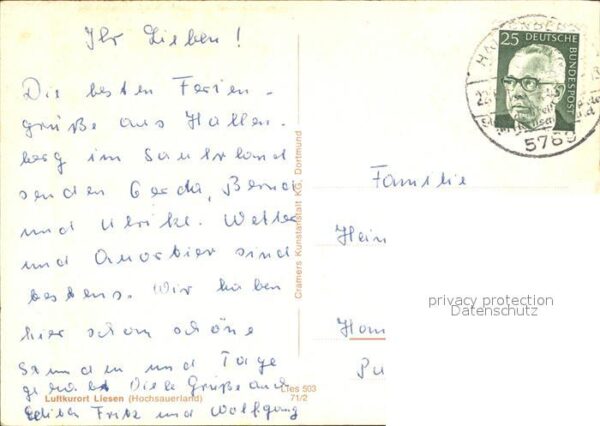 Ihr Lieben!
Die besten Ferien-
grüße aus Hallen-
berg im Sauerland
senden Gerda, Bernd
und Ulrike. Wetter
und Quartier sind
bestens. Wir haben
hier schon schöne
Stunden und Tage
gehabt Viele Grüße auch
Luftkurort Liesen (Hochsauerland)
Fritz und Wolfgang
Lies 503
71/2
Cramers Kunstanstalt KG, Dortmund
25 DEUTSCHE
BUNDESPOST
5789
Familie
Hein
privacy protection
Datenschutz